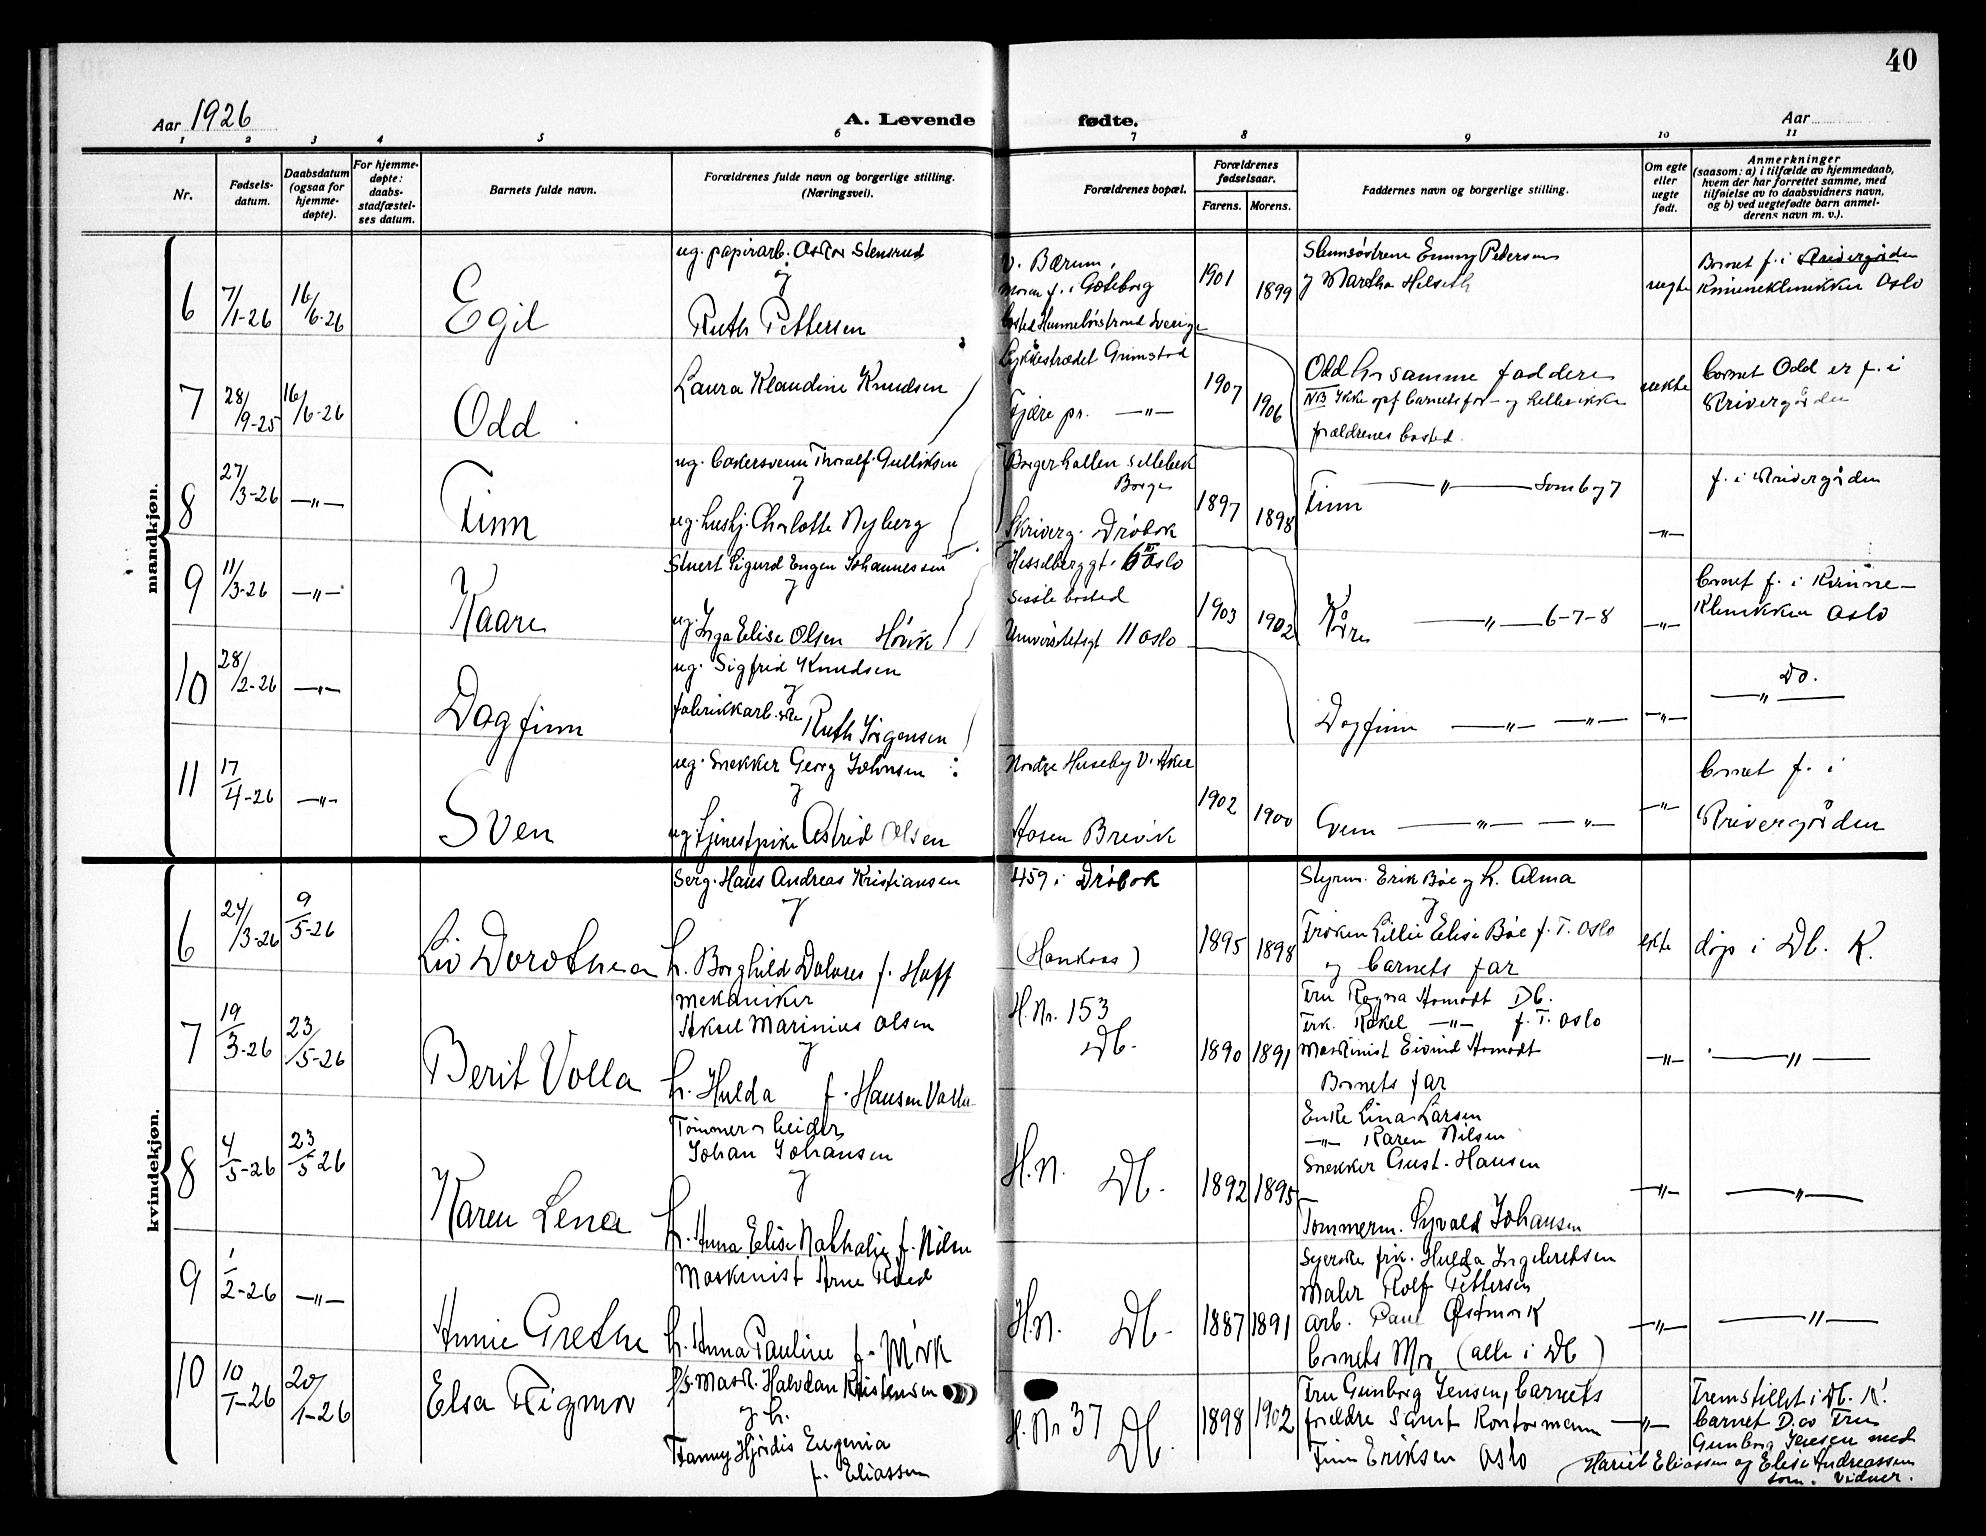 40
Aar 1926
A. Levende
fødte.
Aar
1 2 3 4 5 6 7 8 9 10 11
Nr.
Fødsels-
datum.
Daabsdatum
(ogsaa for
hjemme-
døpte).
For hjemme-
døpte:
daabs-
stadfæstel-
ses datum.
Barnets fulde navn.
Forældrenes fulde navn og borgerlige stilling.
(Næringsvei).
Forældrenes bopæl.
Forældrenes
fødselsaar.
Farens. Morens.
Faddernes navn og borgerlige stilling.
Om egte
eller
uegte
født.
Anmerkninger
(saasom: a) i tilfælde av hjemmedaab,
hvem der har forrettet samme, med
tilføielse av to daabsvidners navn,
og b) ved uegtefødte barn anmel-
derens navn m. v.).
mandkjøn.
6
7/1-26
16/6-26
Egil
ug. papirarb. Astor Stensrud
og
Ruth Pettersen
V. Bærum.
Moren f. i Gøteborg
bosted Hunnebostrand Sverige
1901
1899
Emmy Pedersen
og Martha Helseth
uegte
Barnet f. i
Kvineklinikken Oslo
7
28/9-25
16/6-26
Odd
Laura Klaudine Knudsen
Lykkestrædet Grimstad
Fjære pr. —"—
1907
1906
Odd har samme faddere
NB Ikke opf barnets far - og heller ikke
forældrenes bosted.
uekte
barnet Odd er f. i
8
27/3-26
—"—
Finn
ug. bakersvenn Thoralf Gulliksen
og
ug. hushj. Charlotte Nyberg
Borge
Skriverg. Drøbak
1897
1898
Finn —"— som 6 og 7
—"—
9
11/3-26
—"—
Kaare
Stuert Sigurd Engen Johannessen
og
ug. Inga Elise Olsen
Hesselberggt. 6 Oslo
sidste bosted
Universitetsgt 11 Oslo
1903
1902
Kåre —"— 6-7-8
—"—
barnet f. i Kvinne-
Klinikken Oslo
10
28/2-26
—"—
Dagfinn
ug. Sigfred Knudsen
og
fabrikkarb.ske Ruth Jørgensen
Dagfinn —"— —"—
—"—
Do.
—"—
11
17/4-26
—"—
Sven
ug. Snekker Georg Johnsen
og
ug. tjenestpike Astrid Olsen
Nordre Huseby V. Aker
Brevik
1902
1900
Sven —"— —"—
—"—
barnet f. i
kvindekjøn.
6
24/3-26
9/5-26
Liv Dorothea
Serg. Hans Andreas Kristiansen
og
h. Borghild Dolores f. Hoff
459 i Drøbak
1895
1898
Styrm. Erik Bøe og h. Alma
og
Frøken Lillie Elise Bøe f. T. Oslo
og barnets far
ekte
døp i Db. K.
7
19/3-26
23/5-26
Berit Volla
mekaniker
Aksel Marinius Olsen
og
h. Hulda f. Hansen Volla
H. Nr. 153
Db.
1890
1891
Fru Ragna Aamodt Db.
Frk. Rakel —"— f. T. Oslo
Maskinist Eivind Aamodt
Barnets far
—"—
—"—
8
4/5-26
23/5 26
Karen Lena
Tømmerarbeider
Johan Johansen
og
h. Anna Elise Nathalie f. Nilsen
H. N. Db.
1892
1895
Enke Lina Larsen
—"— Karen Nilsen
Snekker Gust. Hansen
Tømmerm. Syvald Johansen
—"—
—"—
9
1/2-26
—"—
Annie Grethe
Maskinist Arne
h. Anna Pauline f. Mørk
H. N. Db.
1887
1891
Syerske frk. Hulda Ingebretsen
Maler Rolf Pettersen
arb. Paul Østmork
barnets Mor (alle i Db)
—"—
—"—
10
10/1-26
20/1-26
Elsa Rigmor
f/s. Mask. Halvdan Kristensen
og h.
Fanny Hjørdis Eugenia
f. Eliassen
H. Nr 37 Db.
1898
1902
Fru Gunborg Jensen, barnets
forældre samt Kontormann
Finn Eriksen Oslo
—"—
Fremstillet i Db. K.
barnet D. av Fru
Gunborg Jensen med
Harriet Eliassen og Elise Andreassen
som vidner.